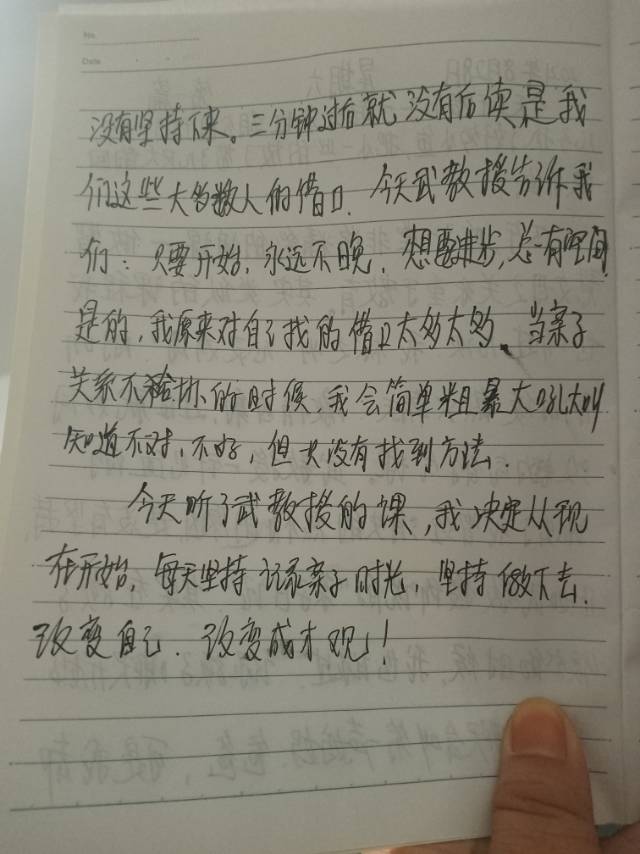 No.
Date
没有坚持下来。三分钟过后就没有后续是我
们这些大多数人的借口. 今天武教授告诉我
们：只要开始, 永远不晚, 想要进步, 总有空间.
是的, 我原来对自己找的借口太多太多。当亲子
关系不和谐的时候, 我会简单粗暴大吼大叫
知道不对, 不好, 但又没有找到方法.
今天听了武教授的课, 我决定从现
在开始, 每天坚持记录亲子时光, 坚持做下去.
改变自己. 改变成才观!